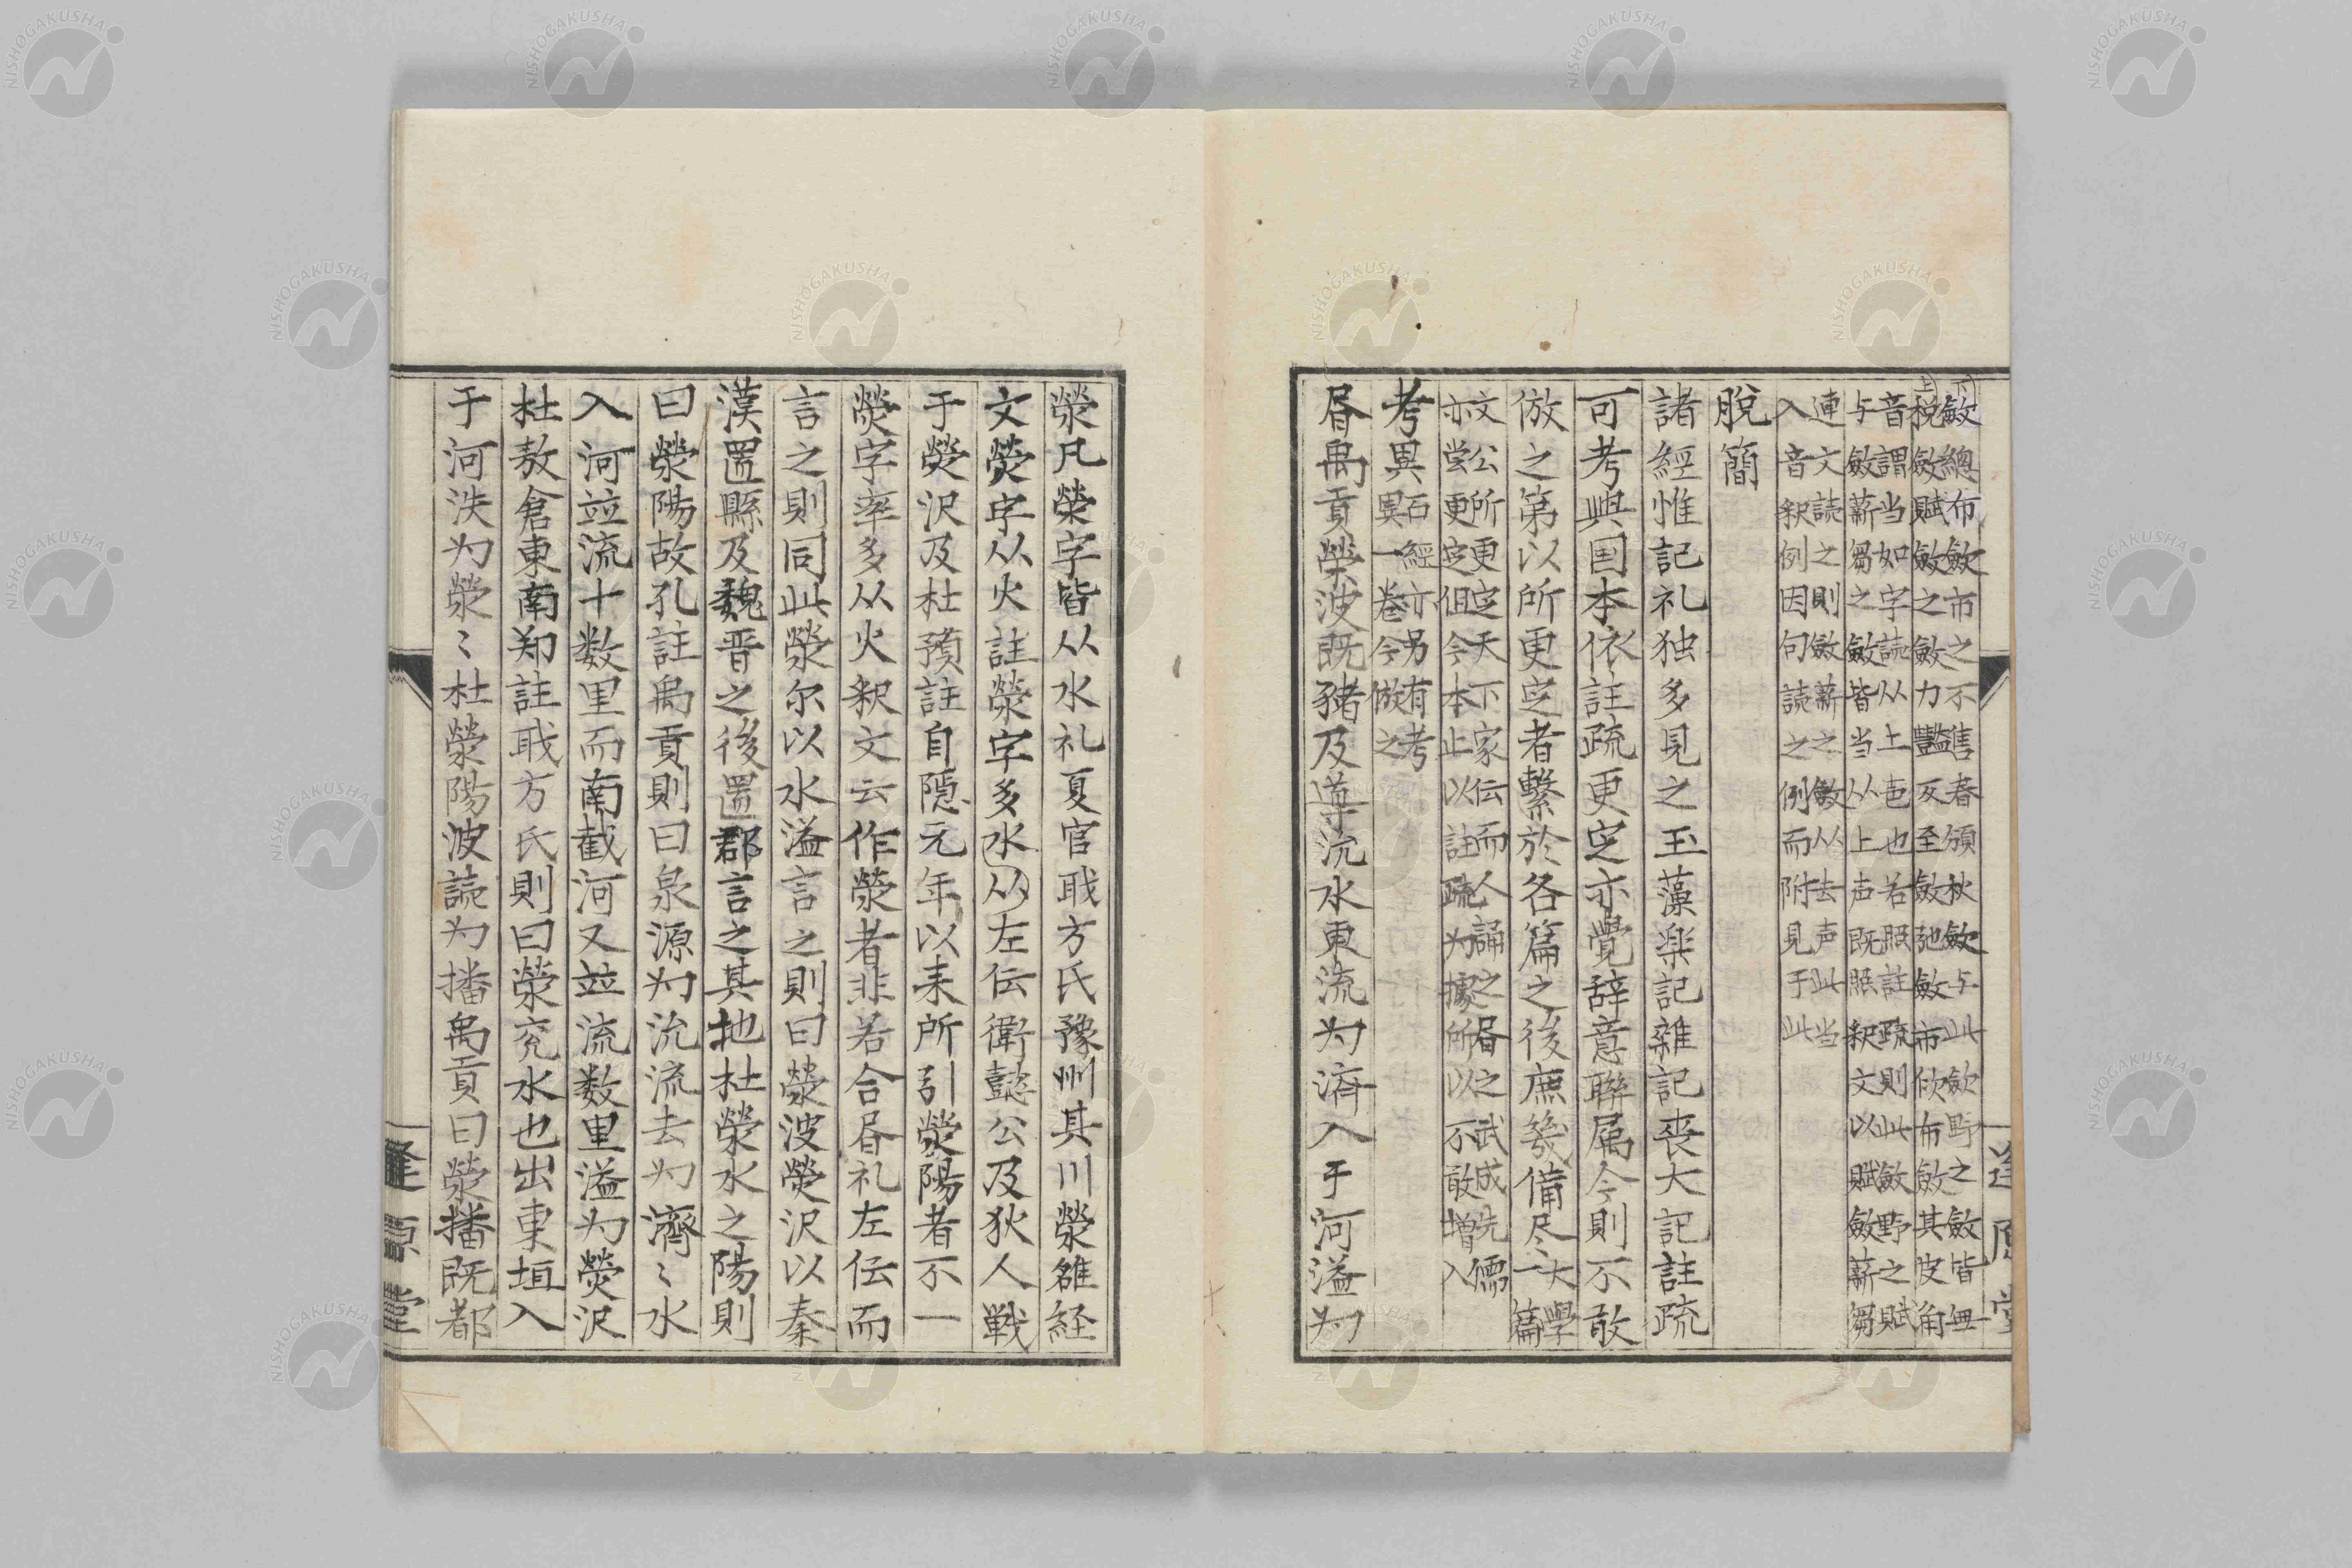 斂總布斂市之不售春頒秋斂与此斂野之斂皆無
税斂賦斂之斂力豔反至斂弛斂市斂布斂其皮角
音謂当如字読从土邑也若照註疏則此斂野之賦
与斂薪芻之斂皆当从上声既照釈文以賦斂薪芻
連文読之則斂薪之斂从去声此当
入音釈例因句読之例而附見于此
脱簡
諸經惟記礼独多見之玉藻楽記雜記喪大記註疏
可考與国本依註疏更定亦覺辞意聯属今則不敢
倣之第以所更定者繫於各篇之後庶幾備尽大學
一篇
文公所更定天下家伝而人誦之㫺之武成先儒
亦尝更定但今本止以註疏为據所以不敢增入
考異石經亦另有考
異一卷今倣之
㫺禹貢榮波既豬及導沇水東流为済入于河溢为
滎凡榮字皆从水礼夏官职方氏豫州其川滎雒経
文熒字从火註滎字多水从左伝衛懿公及狄人戦
于熒沢及杜預註自隠元年以耒所引熒陽者不一
熒字率多从火釈文云作滎者非若合㫺礼左伝而
言之則同此滎尔以水溢言之則曰滎波熒沢以秦
漢置縣及魏晋之後置郡言之其地杜滎水之陽則
曰滎陽故孔註禹貢則曰泉源为沇流去为濟〻水
入河竝流十数里而南截河又竝流数里溢为熒沢
杜敖倉東南郑註职方氏則曰滎兖水也出東垣入
于河泆为滎〻杜滎陽波読为播禹貢曰滎播既都
逢原堂
逢原堂
NISHOGAKUSHA